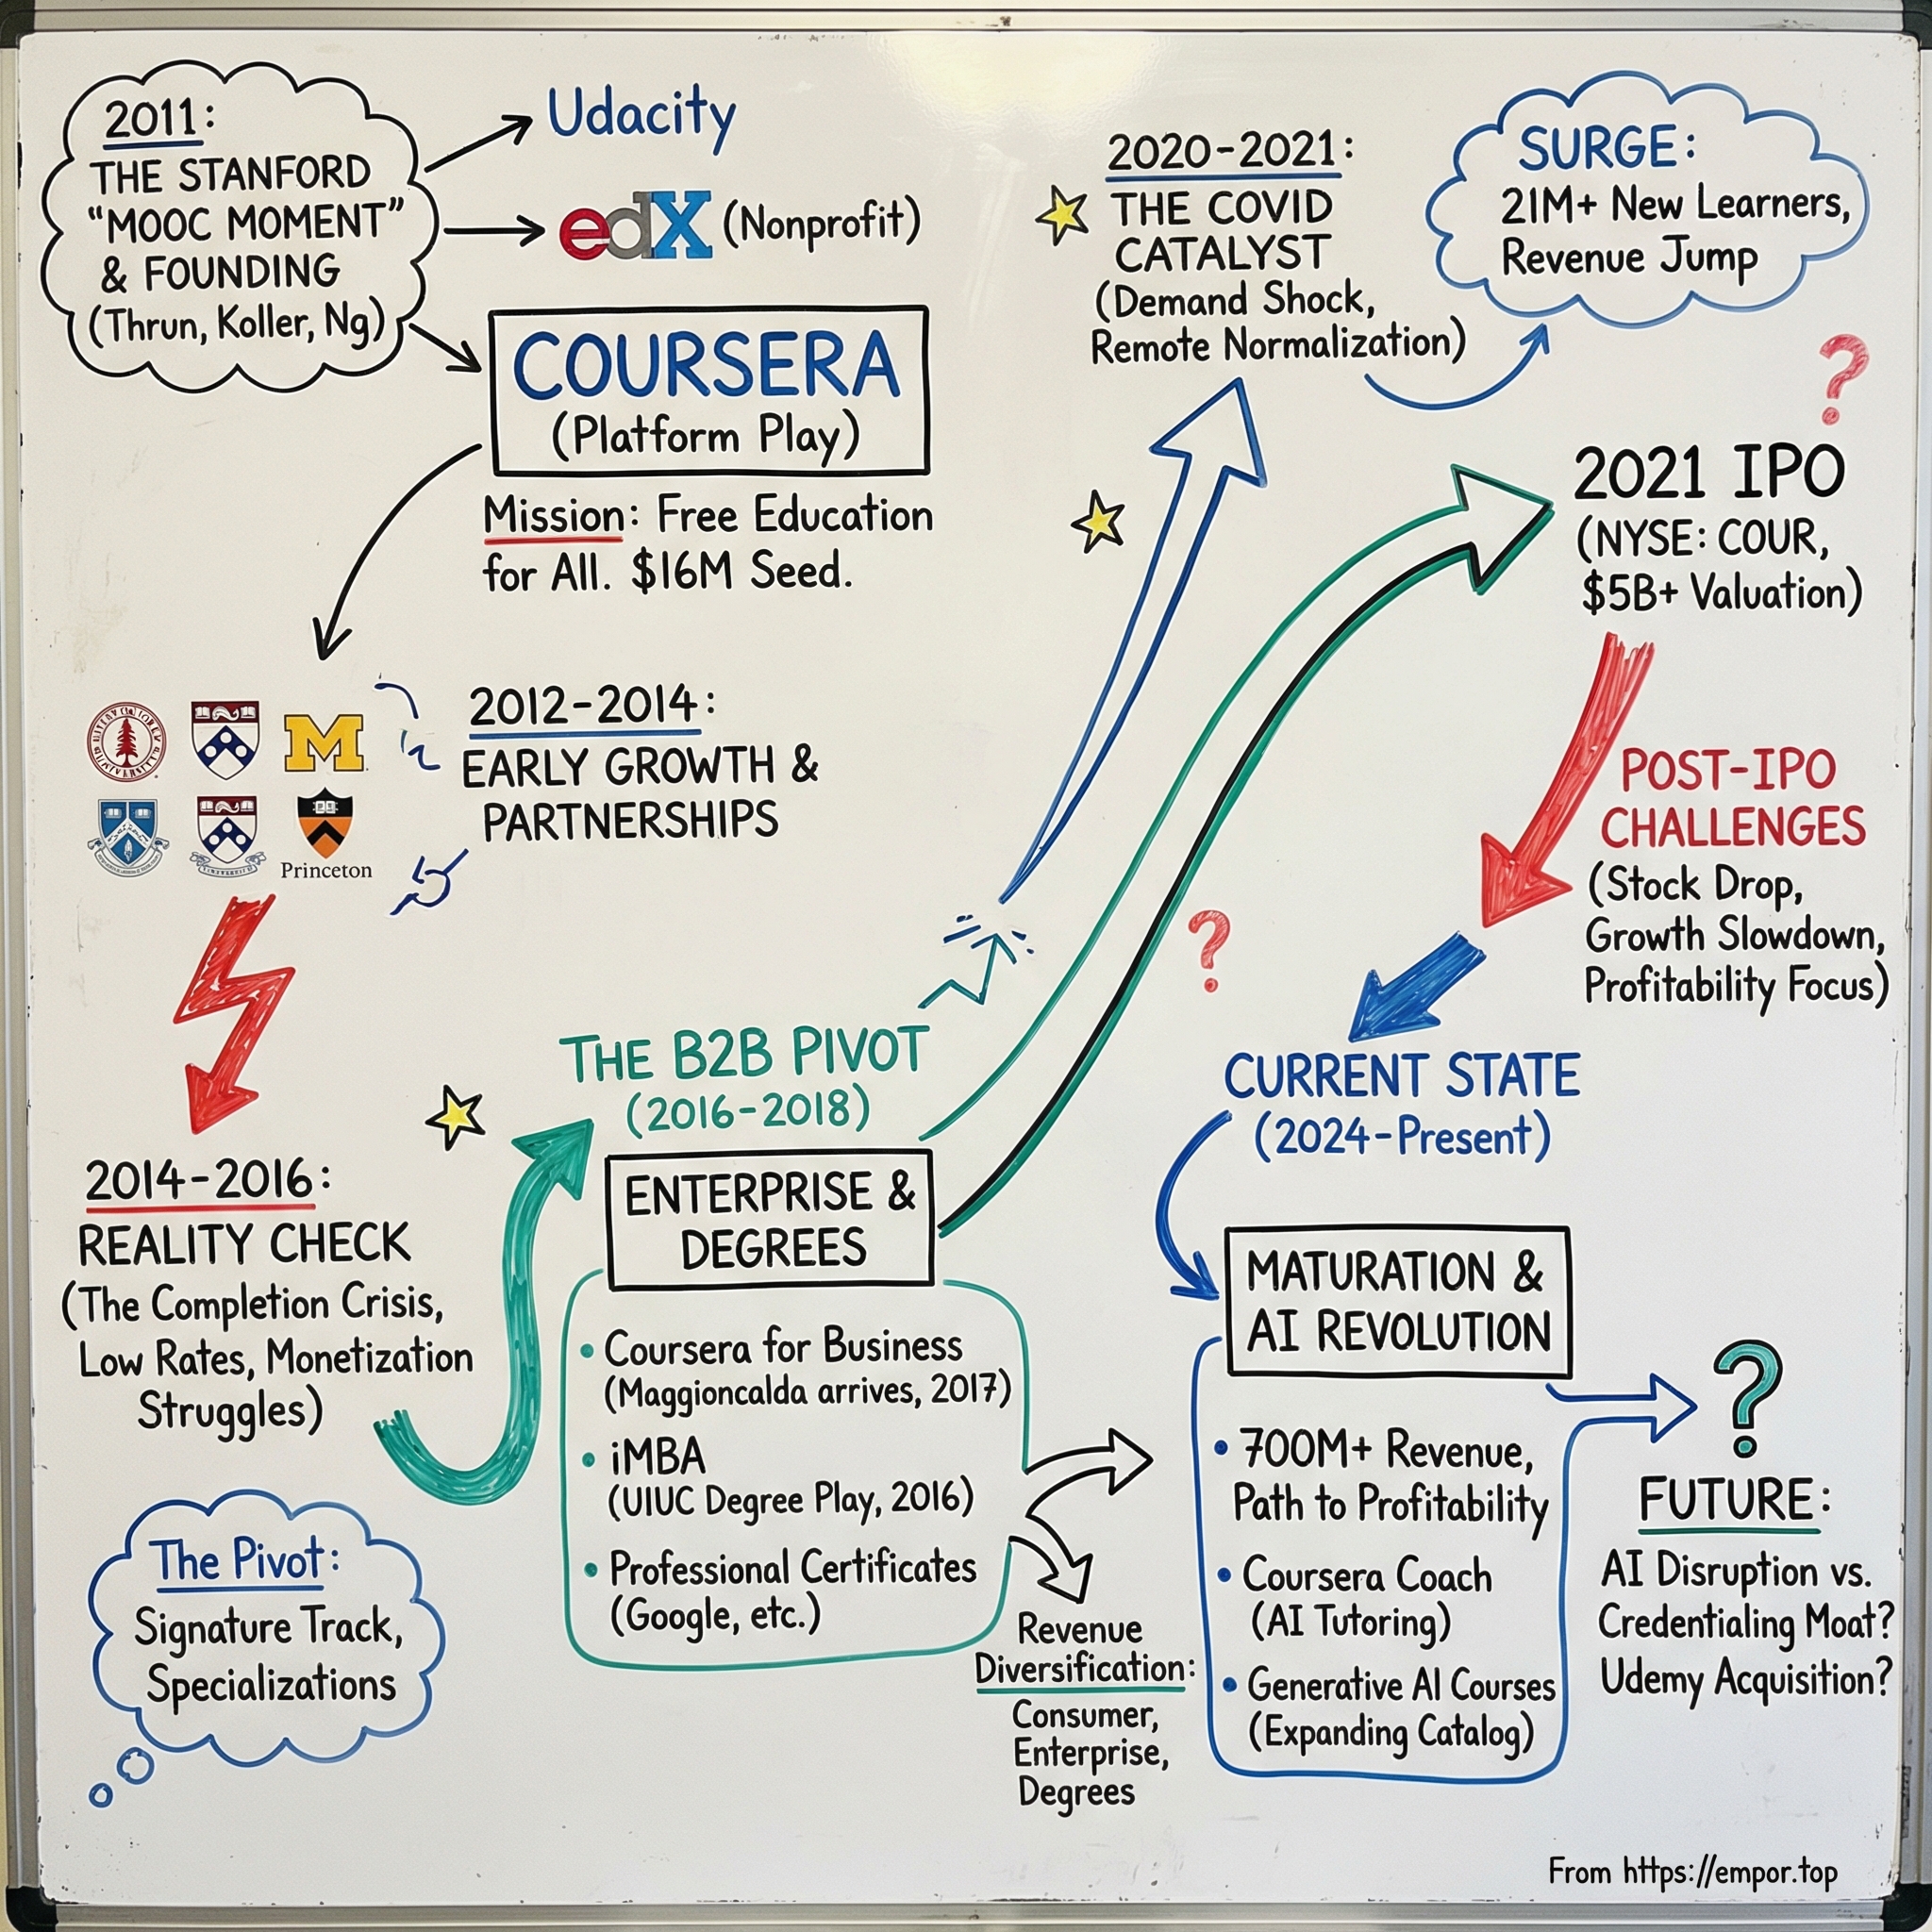 2011:
THE STANFORD
"MOOC MOMENT"
& FOUNDING
(Thrun, Koller, Ng)
Udacity
edX (Nonprofit)
COURSERA
(Platform Play)
Mission: Free Education
for All. $16M Seed.
2012-2014:
EARLY GROWTH &
PARTNERSHIPS
M
Princeton
2014-2016:
REALITY CHECK
(The Completion Crisis,
Low Rates, Monetization
Struggles)
The Pivot:
Signature Track,
Specializations
THE B2B PIVOT
(2016-2018)
ENTERPRISE &
DEGREES
• Coursera for Business
(Maggioncalda arrives, 2017)
• iMBA
(UIUC Degree Play, 2016)
• Professional Certificates
(Google, etc.)
Revenue
Diversification:
Consumer,
Enterprise,
Degrees
2020-2021:
THE COVID
CATALYST
(Demand Shock,
Remote Normalization)
SURGE:
21M+ New Learners,
Revenue Jump
?
2021 IPO
(NYSE: COUR,
$5B+ Valuation)
POST-IPO
CHALLENGES
(Stock Drop,
Growth Slowdown,
Profitability Focus)
?
CURRENT STATE
(2024-Present)
MATURATION &
AI REVOLUTION
• 700M+ Revenue,
Path to Profitability
• Coursera Coach
(AI Tutoring)
• Generative AI Courses
(Expanding Catalog)
?
FUTURE:
AI Disruption vs.
Credentialing Moat?
Udemy Acquisition?
From https://empor.top